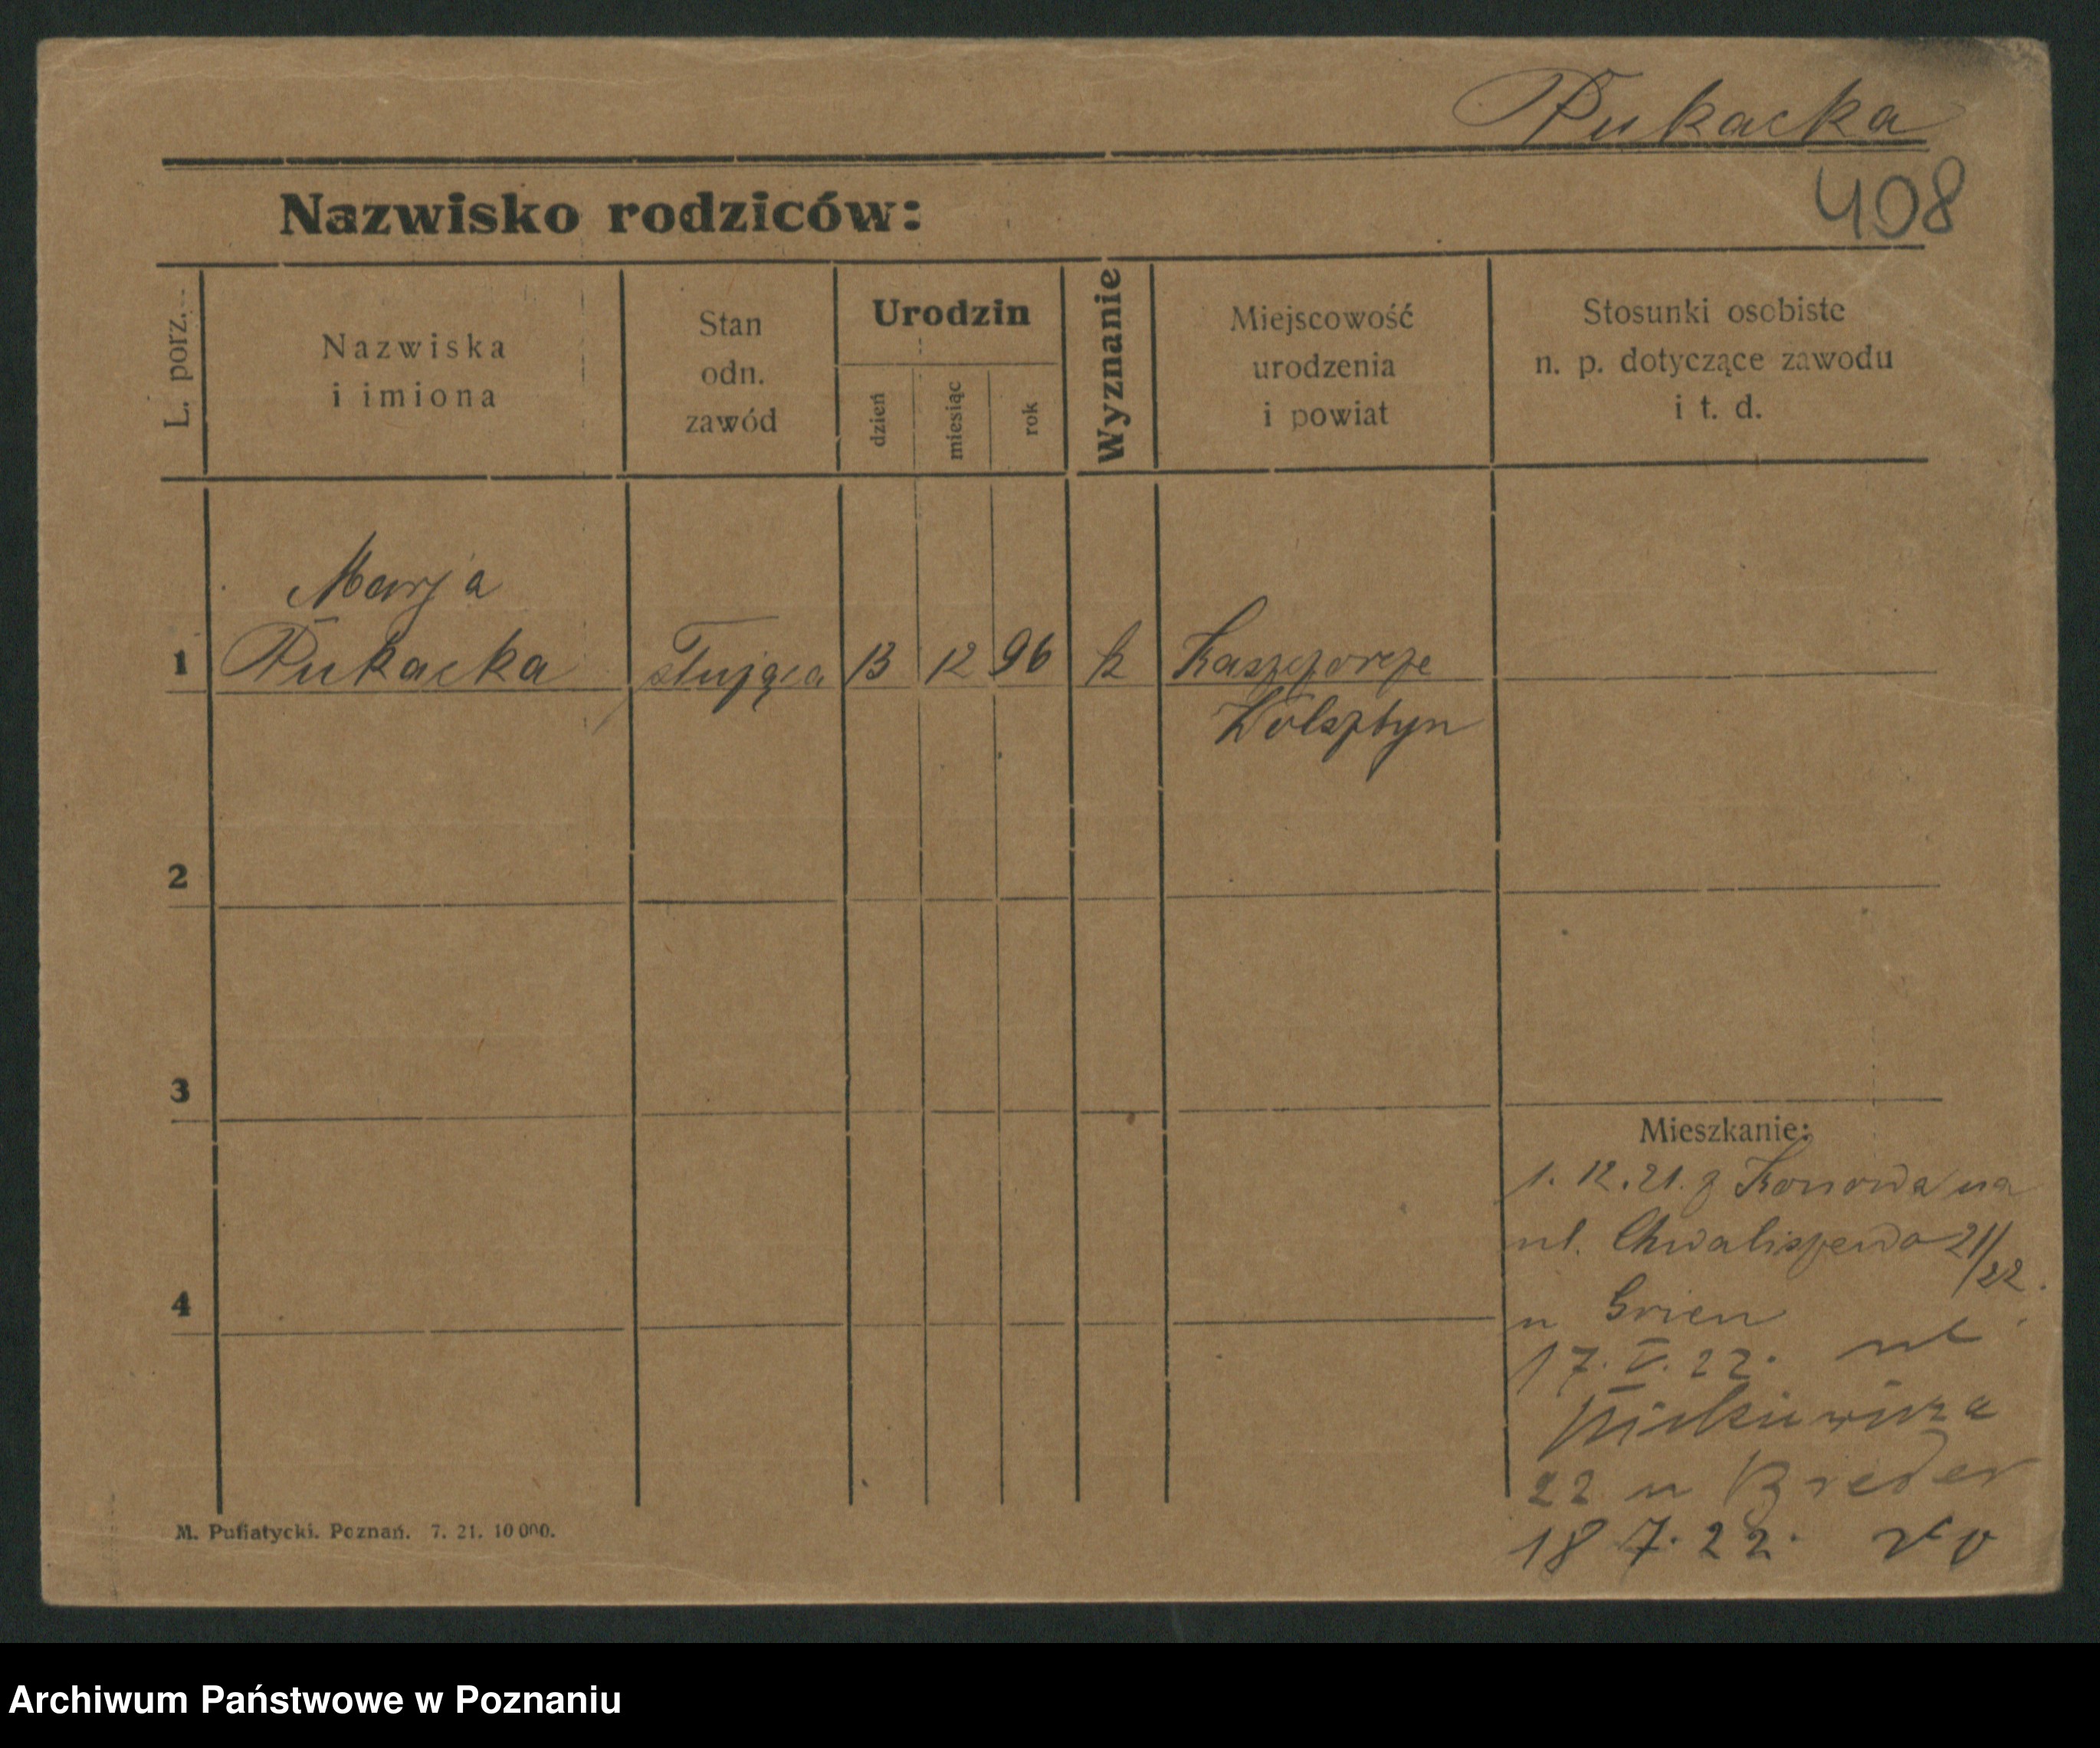 Pukacka
408
Nazwisko rodziców:
L. porz.
Nazwiska
i imiona
Stan
odn.
zawód
Urodzin
dzień
miesiąc
rok
Wyznanie
Miejscowość
urodzenia
i powiat
Stosunki osobiste
n. p. dotyczące zawodu
i t. d.
Marja
1 Pukacka służąca 13 12 96 k
Wolsztyn
2
3
Mieszkanie:
1. 12. 21. z na
ul. Chwaliszewo 21/22.
u Grien
4
17. V. 22. ul
Mickiewicza
22 u Breder
18 7. 22.
M. Pufiatycki. Poznań. 7. 21. 10 000.
Archiwum Państwowe w Poznaniu